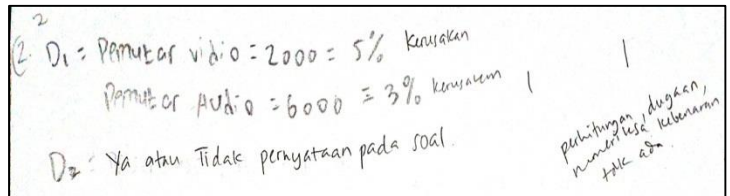 2
2. D1 = Pemutar vidio = 2000 = 5% kerusakan
Pemutar Audio = 6000 = 3% kerusakan | |
D2 : Ya atau Tidak pernyataan pada soal.
perhitungan, dugaan,
memeriksa kebenaran
tdk ada.